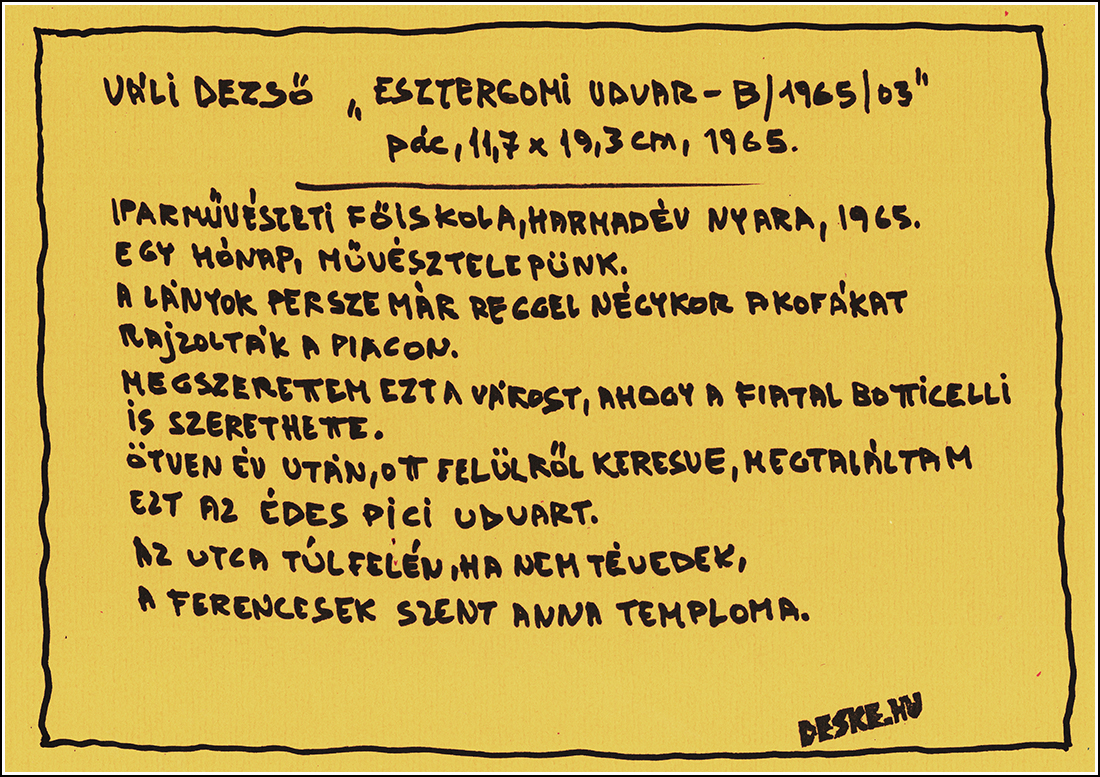 VÁLI DEZSŐ „ESZTERGOMI UDVAR – B/1965/03"
pác, 11,7 x 19,3 cm, 1965.
IPARMŰVÉSZETI FŐISKOLA, HARMADÉV NYARA, 1965.
EGY HÓNAP, MŰVÉSZTELEPÜNK.
A LÁNYOK PERSZE MÁR REGGEL NÉGYKOR A KOFÁKAT
RAJZOLTÁK A PIACON.
MEGSZERETTEM EZT A VÁROST, AHOGY A FIATAL BOTTICELLI
IS SZERETHETTE.
ÖTVEN ÉV UTÁN, OTT FELÜLRŐL KERESVE, MEGTALÁLTAM
EZT AZ ÉDES PICI UDVART.
AZ UTCA TÚLFELÉN, HA NEM TÉVEDEK,
A FERENCESEK SZENT ANNA TEMPLOMA.
DESKE.HU